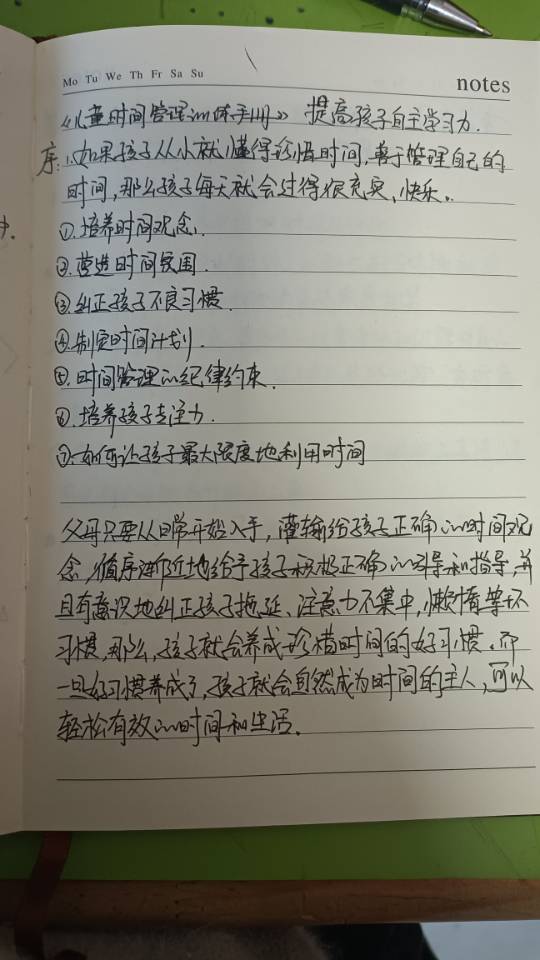 Mo Tu We Th Fr Sa Su
notes
《儿童时间管理训练手册》 提高孩子自主学习力.
序: 1.如果孩子从小就懂得珍惜时间,善于管理自己的
时间,那么孩子每天就会过得很充实、快乐.
①.培养时间观念.
②.营造时间氛围.
③.纠正孩子不良习惯.
④.制定时间计划.
⑤.时间管理的纪律约束.
⑥.培养孩子专注力.
⑦.如何让孩子最大限度地利用时间
父母只要从日常开始入手,灌输给孩子正确的时间观
念,循序渐近地给予孩子积极正确的引导和指导,并
且有意识地纠正孩子拖延、注意力不集中,懒惰等坏
习惯,那么,孩子就会养成珍惜时间的好习惯.而
一旦好习惯养成了,孩子就会自然成为时间的主人,可以
轻松有效的时间和生活.